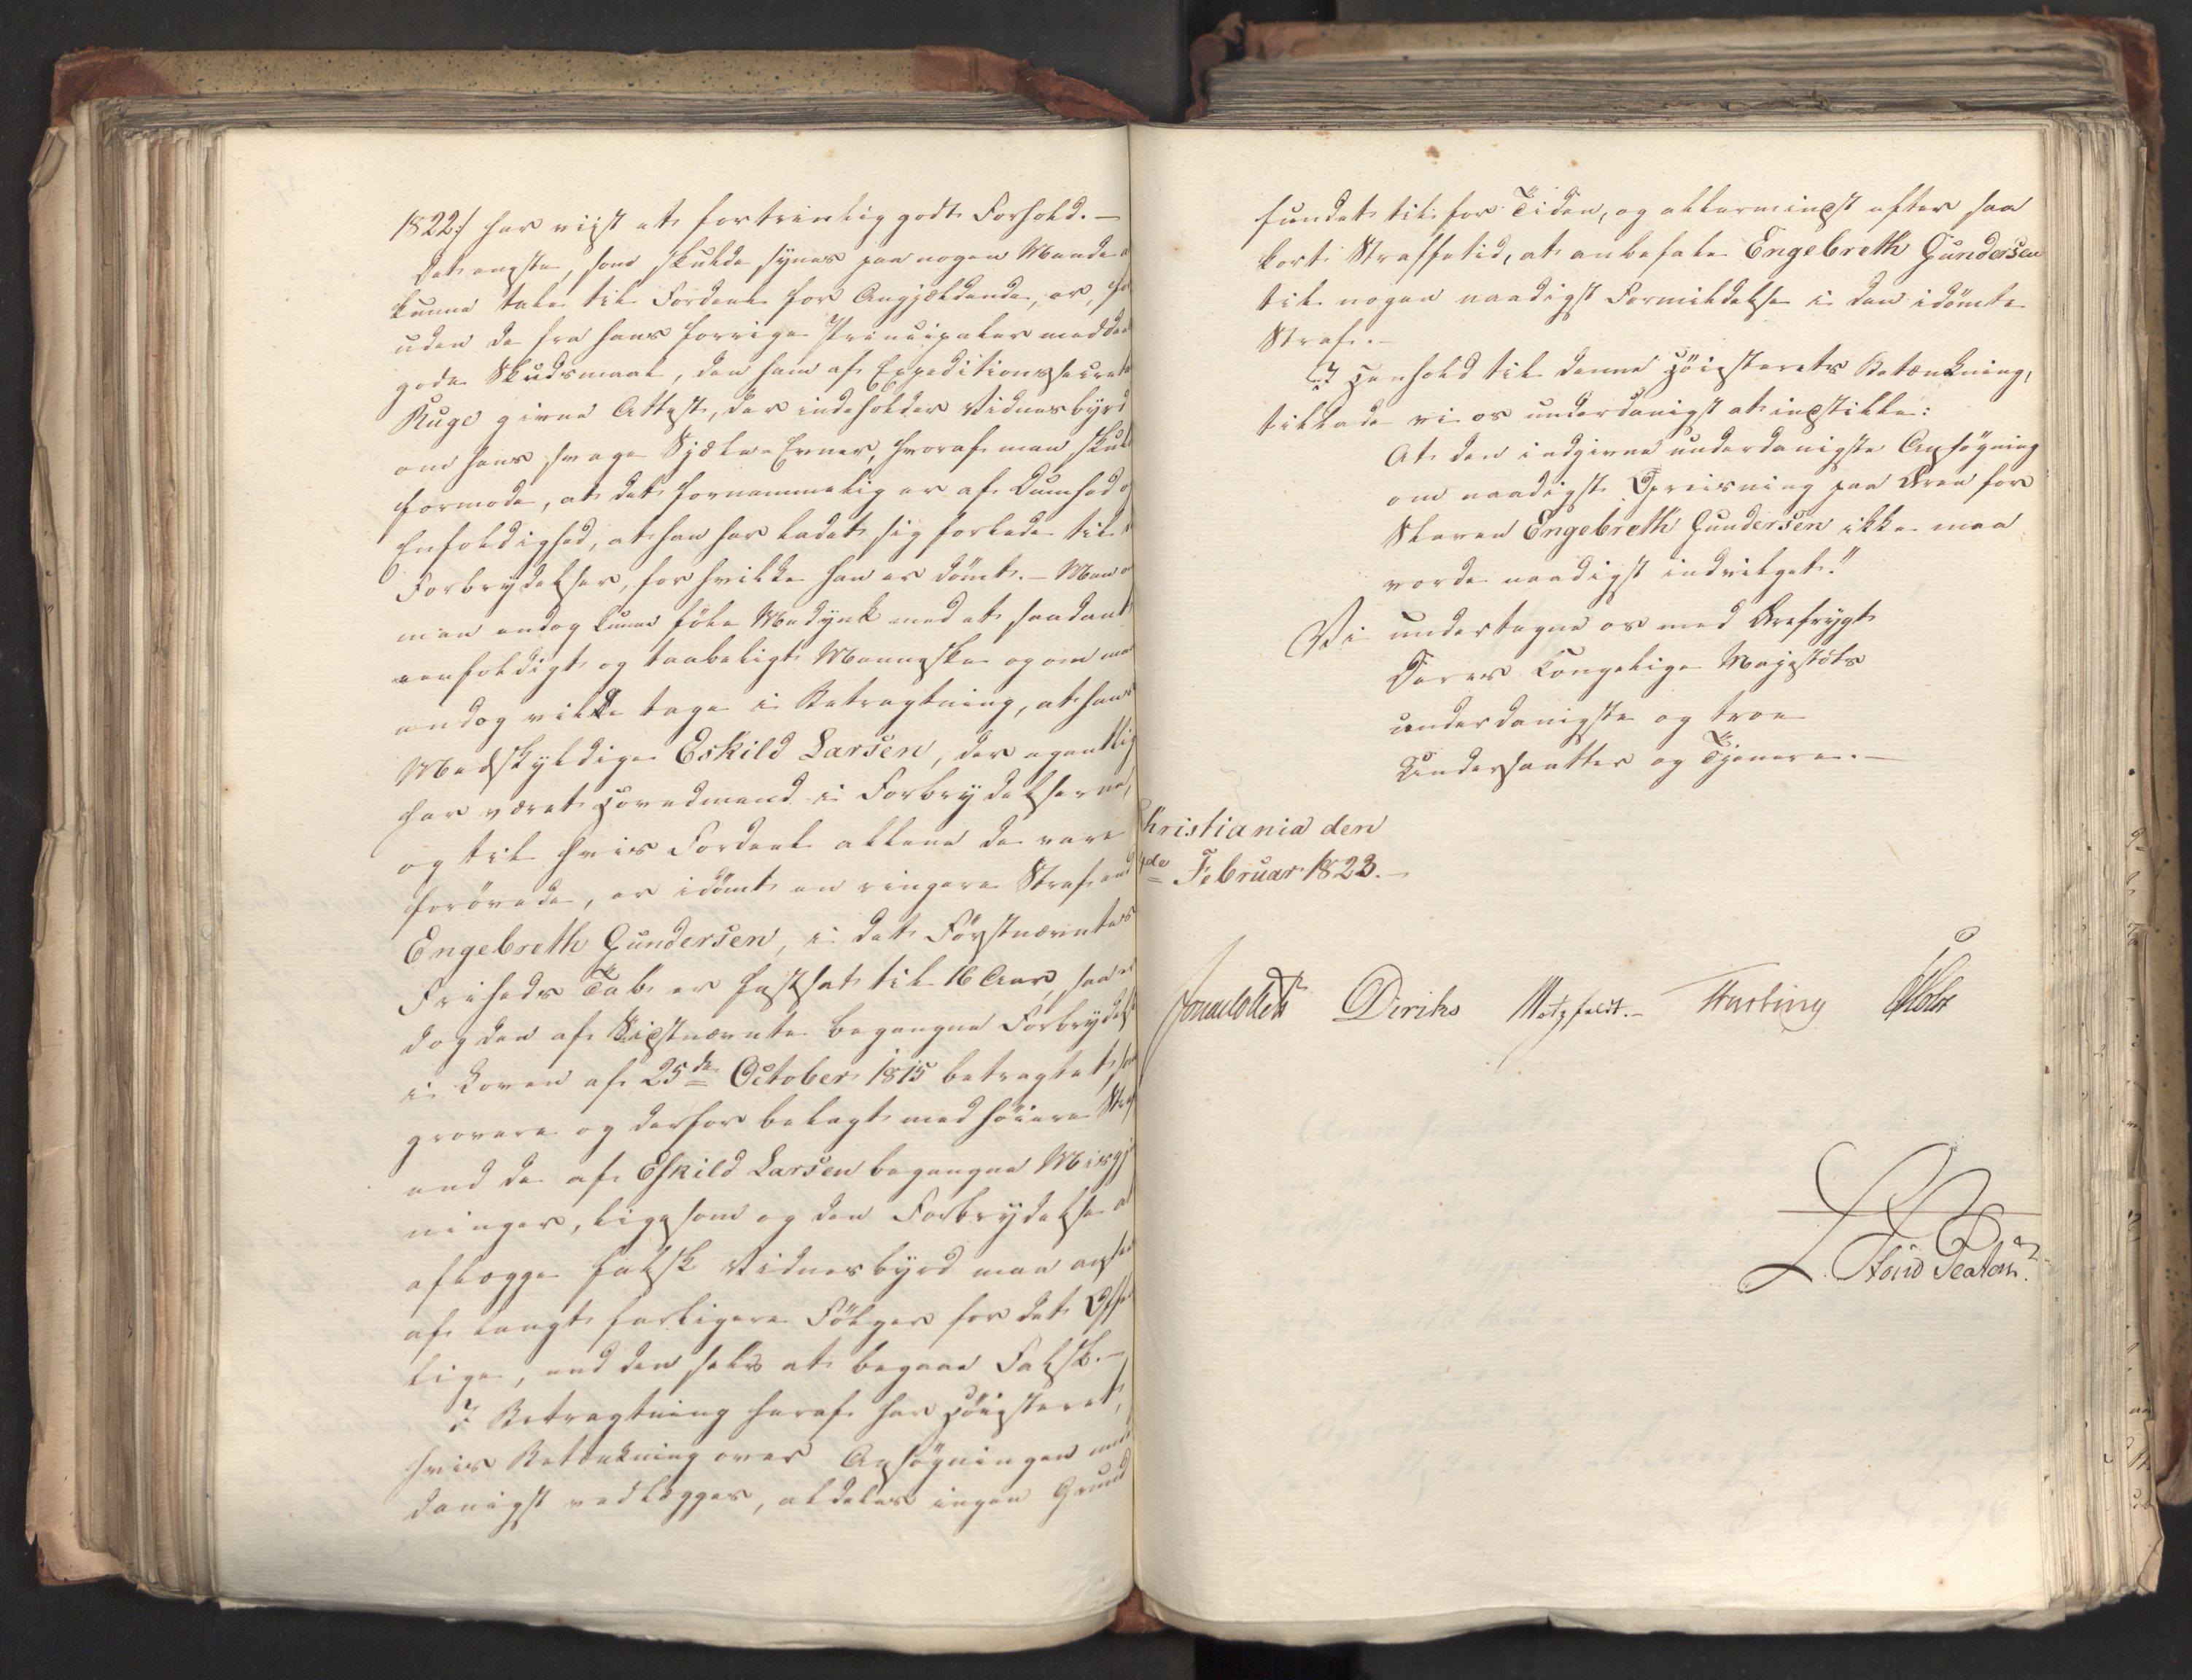 1822:/ har viist et fortrinlig godt Forhold. –
Det eneste, som skulde synes paa nogen Maade a
kunne tale til Fordeel for Angjældende, er, for
uden de fra hans forrige Principaler meddee
gode Skudsmaal, den ham af Expeditionssecret
Ruge givne Attest, der indeholder Vidnesbyrd
om hans svage Sjæls-Evner, hvoraf man skul
formode, at det fornemmelig er af Dumhed o
Enfoldighed, at han har ladet sig forlede til
Forbrydelser, for hvilke han er dømt. – Men o
man endog kunne føle Medynk med et saadant
eenfoldigt og taabeligt Menneske og om ma
endog vilde tage i Betragtning, at hans
Medskyldige Eskild Larsen, der egentlig
har været Hovedmand i Forbrydelserne,
og til hvis Fordeel allene de vare
forøvede, er idømt en ringere Straf end
Engebreth Gundersen, i det Førstnævntes
Friheds Tab er fastsat til 16 Aar, saa er
dog den af Sidstnævnte begangne Forbrydels
i Loven af 25de October 1815 betragtet som
grovere og derfor belagt med høiere Straf
end de af Eskild Larsen begangne Misgje
ninger, ligesom og den Forbrydelse a
aflægge falsk Vidnesbyrd maa ansees
af langt farligere Følger for det Offe
lige, end den selv at begaae Falsk. –
I Betragtning heraf har Høiesteret,
hvis Betænkning over Ansøgningen und
danigst vedlægges, aldeles ingen Grund
fundet til for Tiden, og allermindst efter saa
kort Straffetid, at anbefale Engebreth Gundersen
til nogen naadigst Formildelse i den idømte
Straf. –
I Henhold til denne Høiesterets Betænkning,
tillade vi os underdanigst at indstille:
At den indgivne underdanigste Ansøgning
om naadigst Opreisning paa Æren for
Slaven Engebreth Gundersen ikke maa
vorde naadigst indvilget."
Vi undertegne os med Ærefrygt
Deres Kongelige Majestæts
underdanigste og troe
Undersaatter og Tjenere. –
Christiania den
de Februar 1823. –
Diriks Motzfeldt. – Fasting